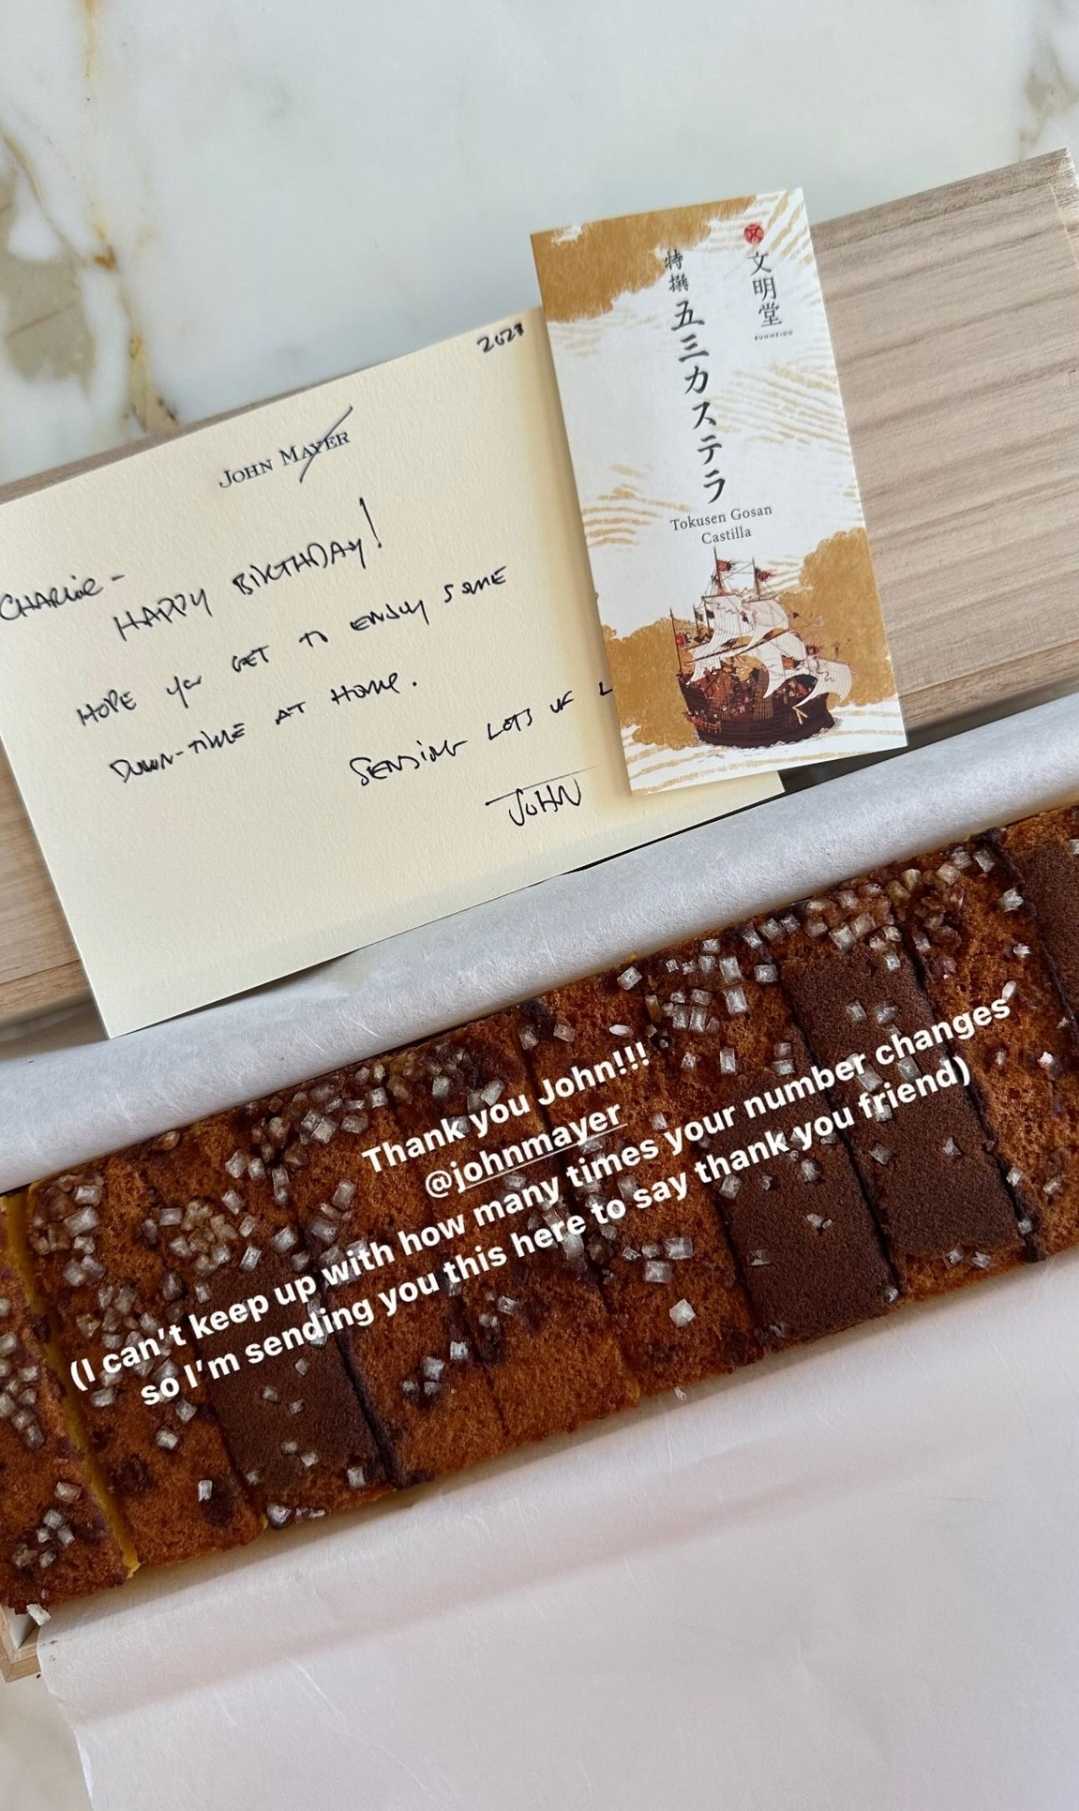 2023
JOHN MAYER
CHARLIE -
HAPPY BIRTHDAY!
HOPE YOU GET TO ENJOY SOME
DOWN-TIME AT HOME.
SENDING LOTS OF L
JOHN
文
文明堂
BUNMEIDO
特撰
五三カステラ
Tokusen Gosan
Castilla
Thank you John!!!
@johnmayer
(I can't keep up with how many times your number changes
so I'm sending you this here to say thank you friend)